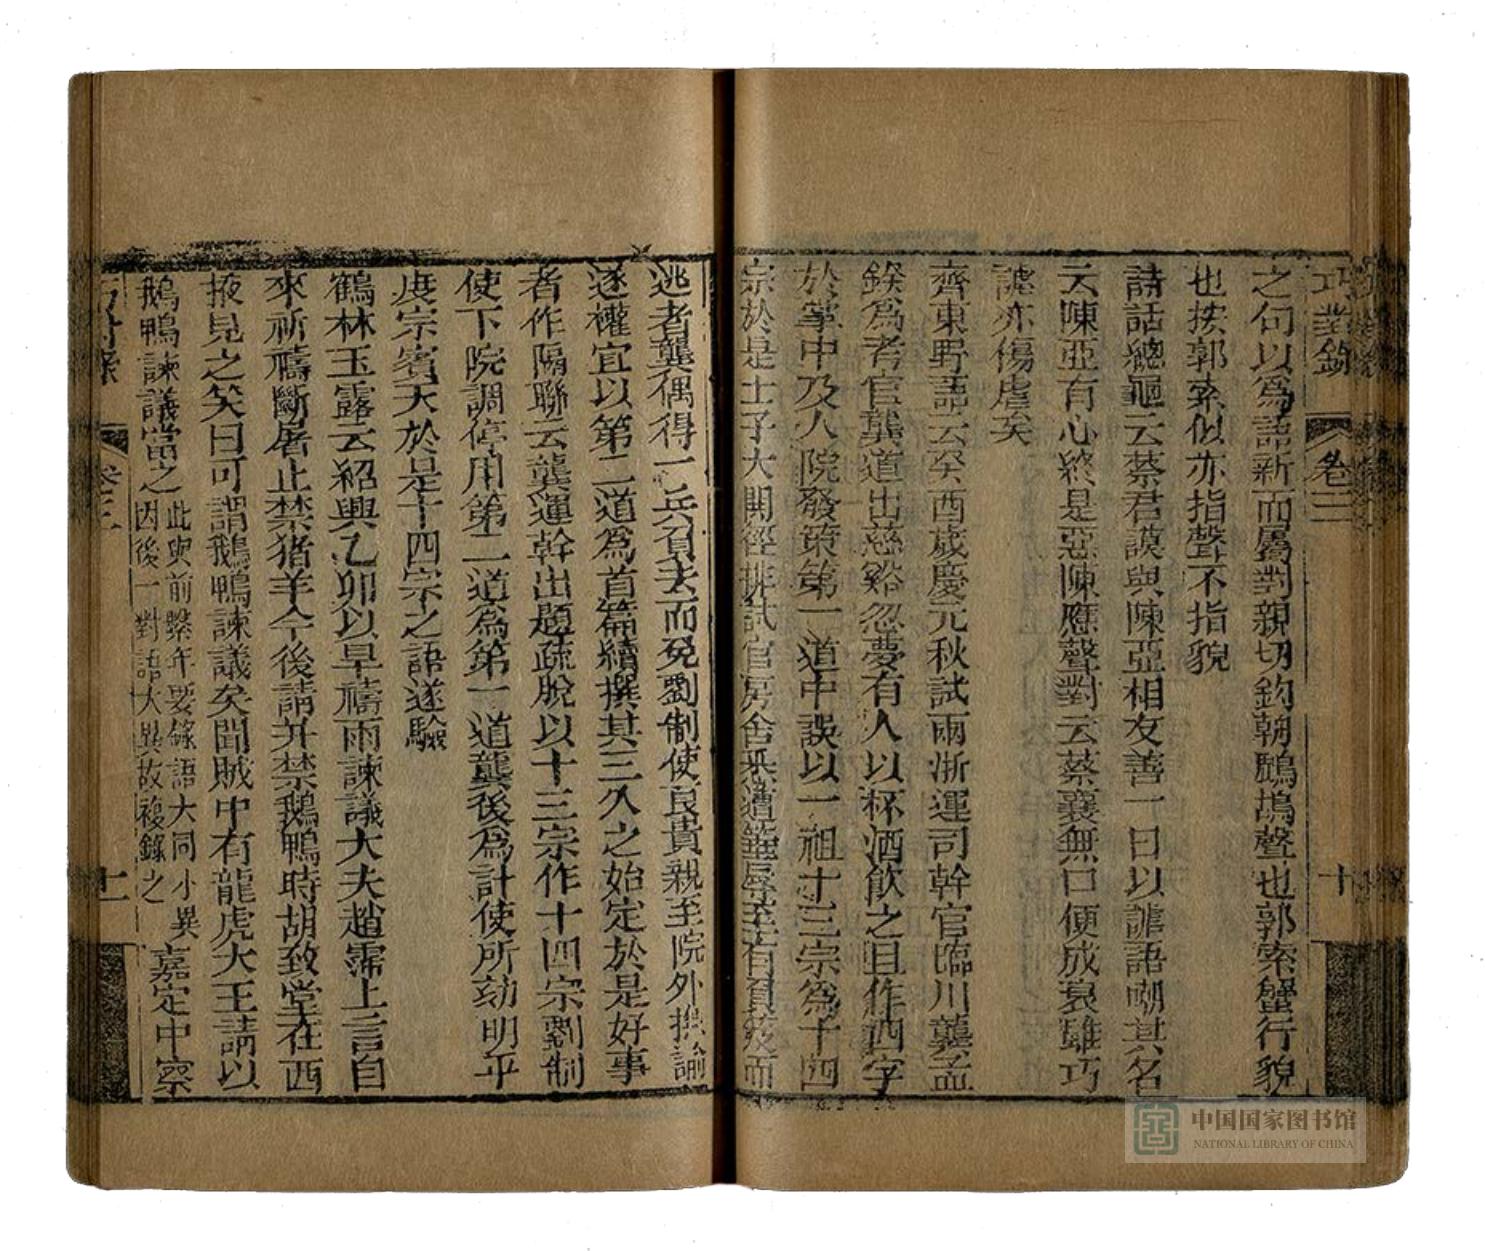 巧對錄
卷三
十
之句以爲語新而屬對親切鈞輈鷓鴣聲也郭索蟹行貌
也按郭索似亦指聲不指貌
詩話總龜云蔡君謨與陳亞相友善一日以謔語嘲其名
云陳亞有心終是惡陳應聲對云蔡襄無口便成衰雖巧
謔亦傷虐矣
齊東野語云癸酉歲慶元秋試兩浙運司幹官臨川龔孟
鍨爲考官龔道出慈谿忽夢有人以杯酒飲之且作四字
於掌中及入院發策第一道中誤以一祖十三宗爲十四
宗於是士子大鬨徑排試官房舍悉遭箠辱至有負笈而
逃者龔偶得一兵負去而免劉制使良貴親至院外撫諭
遂權宜以第二道爲首篇續撰其三久之始定於是好事
者作隔聯云龔運幹出題疏脫以十三宗作十四宗劉制
使下院調停用第二道爲第一道龔後爲計使所劾明平
度宗賓天於是十四宗之語遂驗
鶴林玉露云紹興乙卯以旱禱雨諫議大夫趙霈上言自
來祈禱斷屠止禁猪羊今後請并禁鵝鴨時胡致堂在西
掖見之笑曰可謂鵝鴨諫議矣聞賊中有龍虎大王請以
鵝鴨諫議當之此與前繫年要錄語大同小異
因後一對語大異故複錄之嘉定中察
巧對錄
卷三
十一
中国国家图书馆
NATIONAL LIBRARY OF CHINA